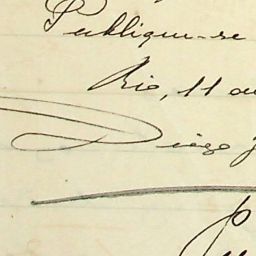 Publique-se
Rio, 11
Diogo